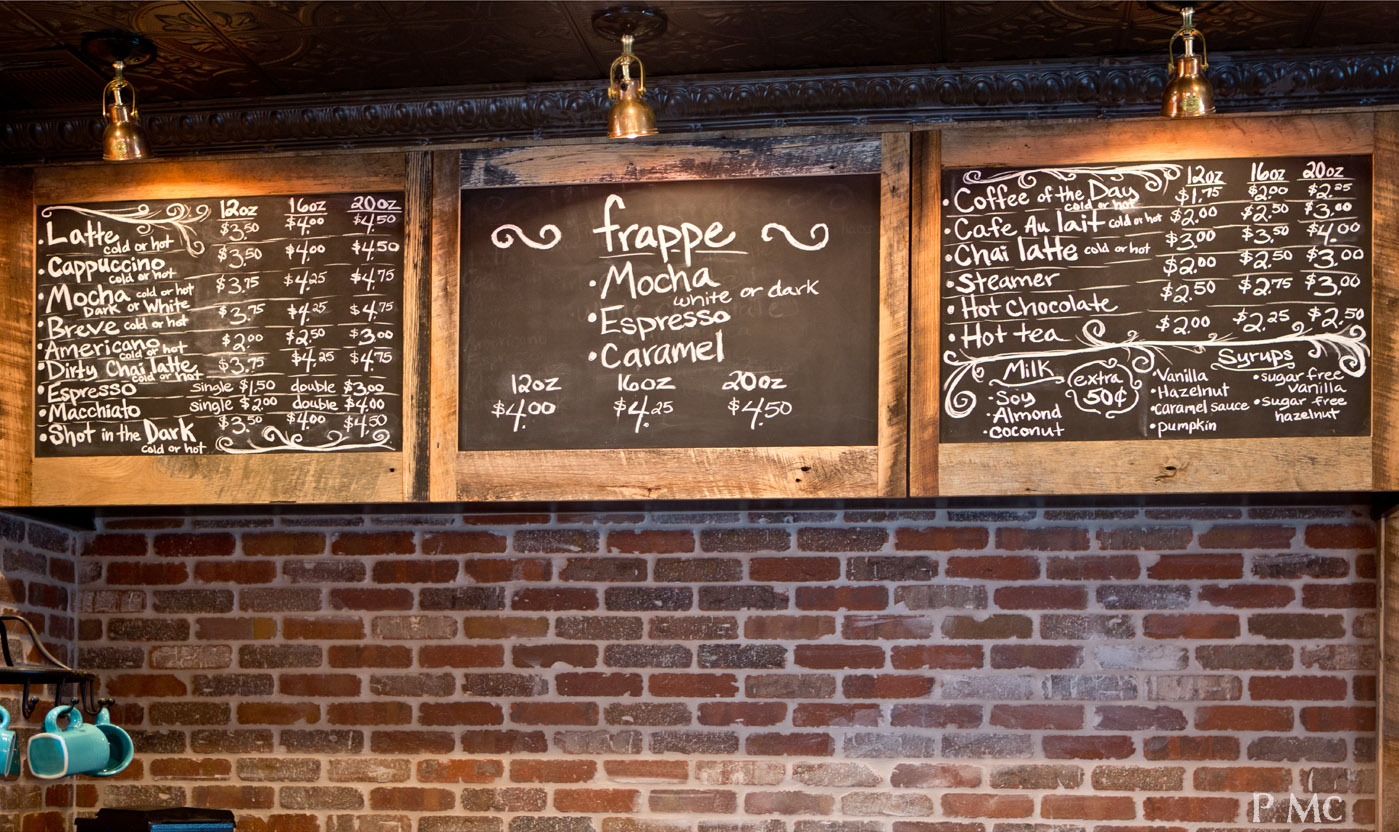 12oz 16oz 20oz
• Latte $3.50 $4.00 $4.50
cold or hot
• Cappuccino $3.50 $4.00 $4.50
cold or hot
• Mocha cold or hot $3.75 $4.25 $4.75
Dark or White
• Breve cold or hot $3.75 $4.25 $4.75
• Americano $2.00 $2.50 $3.00
cold or hot
• Dirty Chai latte $3.75 $4.25 $4.75
cold or hot
• Espresso single $1.50 double $3.00
• Macchiato single $2.00 double $4.00
• Shot in the Dark $3.50 $4.00 $4.50
cold or hot
frappe
• Mocha
white or dark
• Espresso
• Caramel
12oz 16oz 20oz
$4.00 $4.25 $4.50
12oz 16oz 20oz
• Coffee of the Day $1.75 $2.00 $2.25
cold or hot
• Cafe Au lait cold or hot $2.00 $2.50 $3.00
• Chai latte cold or hot $3.00 $3.50 $4.00
• Steamer $2.00 $2.50 $3.00
• Hot Chocolate $2.50 $2.75 $3.00
• Hot tea $2.00 $2.25 $2.50
Milk
• Soy
• Almond
• Coconut
extra
50¢
Syrups
• Vanilla
• Hazelnut
• caramel sauce
• pumpkin
• sugar free
vanilla
• sugar free
hazelnut
P Mc